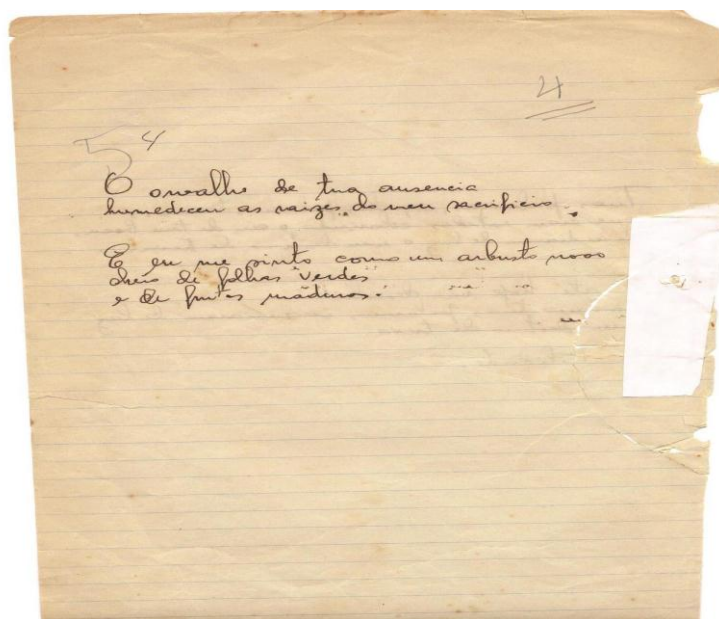 4
5 4
O orvalho de tua ausencia
humedeceu as raizes do meu sacrificio.
E eu me sinto como um arbusto novo
cheio de folhas verdes
e de frutos maduros.